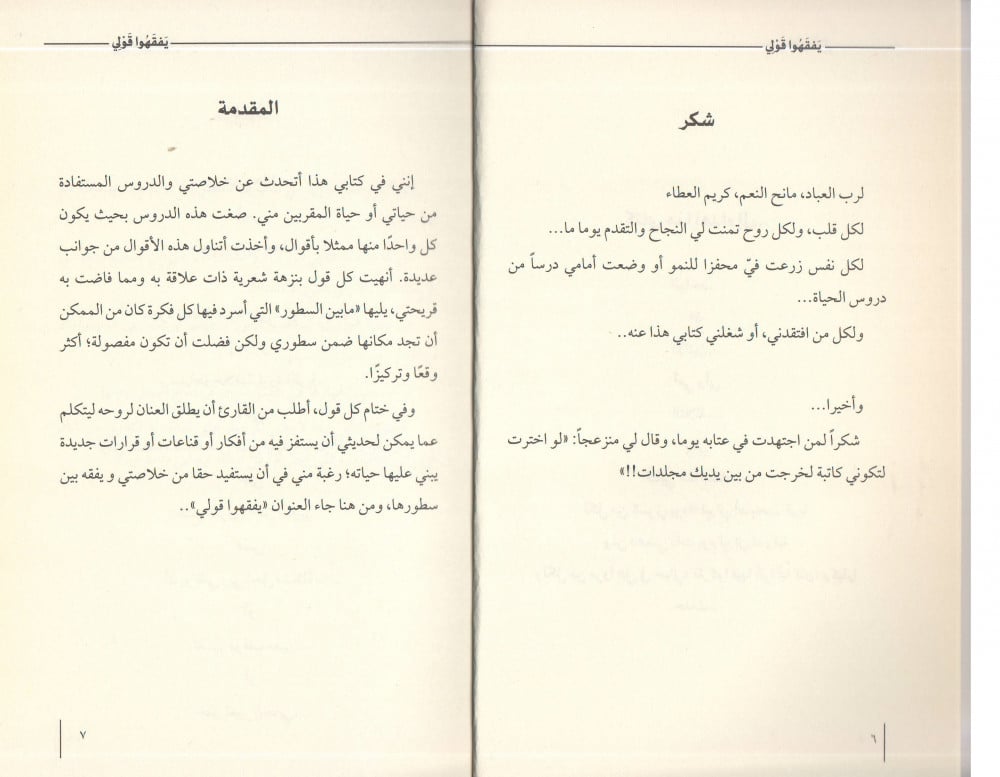 يَفقَهُوا قَوْلِي
شكر
لرب العباد، مانح النعم، كريم العطاء
لكل قلب، ولكل روح تمنت لي النجاح والتقدم يوما ما...
لكل نفس زرعت فيّ محفزا للنمو أو وضعت أمامي درساً من
دروس الحياة...
ولكل من افتقدني، أو شغلني كتابي هذا عنه..
وأخيرا...
شكراً لمن اجتهدت في عتابه يوما، وقال لي منزعجاً: «لو اخترت
لتكوني كاتبة لخرجت من بين يديك مجلدات!!»
٦
يَفقَهُوا قَوْلِي
المقدمة
إنني في كتابي هذا أتحدث عن خلاصتي والدروس المستفادة
من حياتي أو حياة المقربين مني. صغت هذه الدروس بحيث يكون
كل واحدًا منها ممثلا بأقوال، وأخذت أتناول هذه الأقوال من جوانب
عديدة. أنهيت كل قول بنزهة شعرية ذات علاقة به ومما فاضت به
قريحتي، يليها «مابين السطور» التي أسرد فيها كل فكرة كان من الممكن
أن تجد مكانها ضمن سطوري ولكن فضلت أن تكون مفصولة؛ أكثر
وقعًا وتركيزًا.
وفي ختام كل قول، أطلب من القارئ أن يطلق العنان لروحه ليتكلم
عما يمكن لحديثي أن يستفز فيه من أفكار أو قناعات أو قرارات جديدة
يبني عليها حياته؛ رغبة مني في أن يستفيد حقا من خلاصتي و يفقه بين
سطورها، ومن هنا جاء العنوان «يفقهوا قولي»..
٧